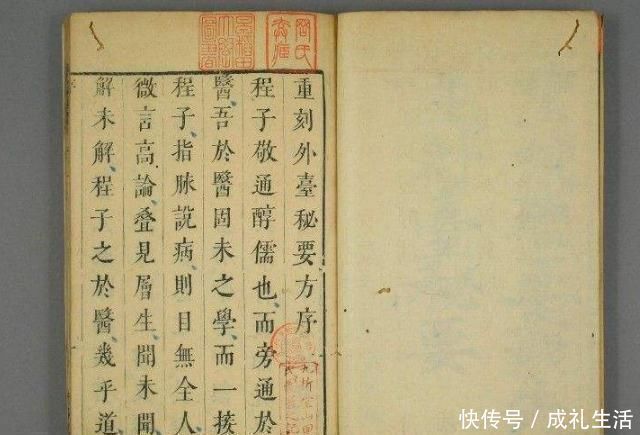 重刻外臺秘要方序
程子敬通醇儒也而旁通於
醫吾於醫固未之學而一接
程子指脉説病則目無全人
微言高論叠見層生聞未聞
解未解程子之於醫幾乎道
快传号／成礼生活